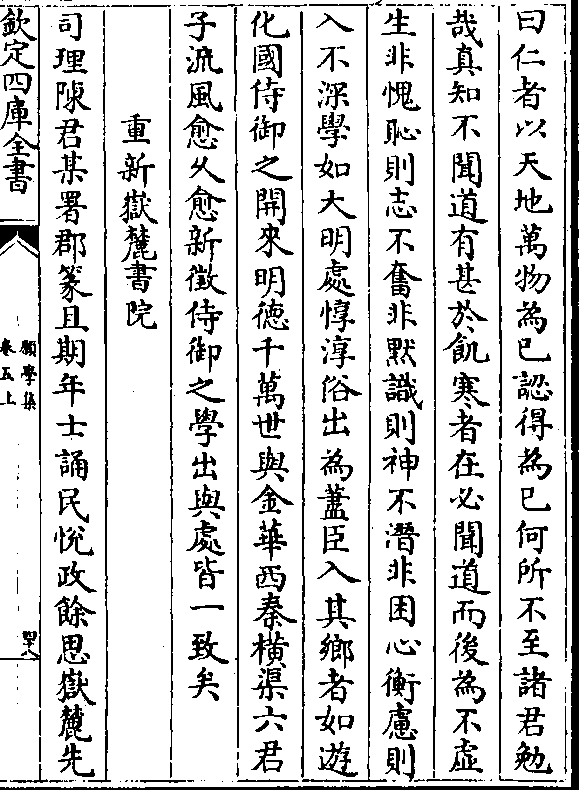 曰仁者以天地萬物為已認得為已何所不至諸君勉
哉真知不聞道有甚於飢寒者在必聞道而後為不虚
生非愧恥則志不奮非默識則神不潛非困心衡慮則
入不深學如大明處惇淳俗出為藎臣入其鄉者如遊
化國侍御之開來明德千萬世與金華西秦橫渠六君
子流風愈乆愈新徵侍御之學出與處皆一致矣
重新嶽麓書院
司理陳君某署郡篆且期年士誦民悅政餘思嶽麓先
欽定四庫全書
願學集
卷五上